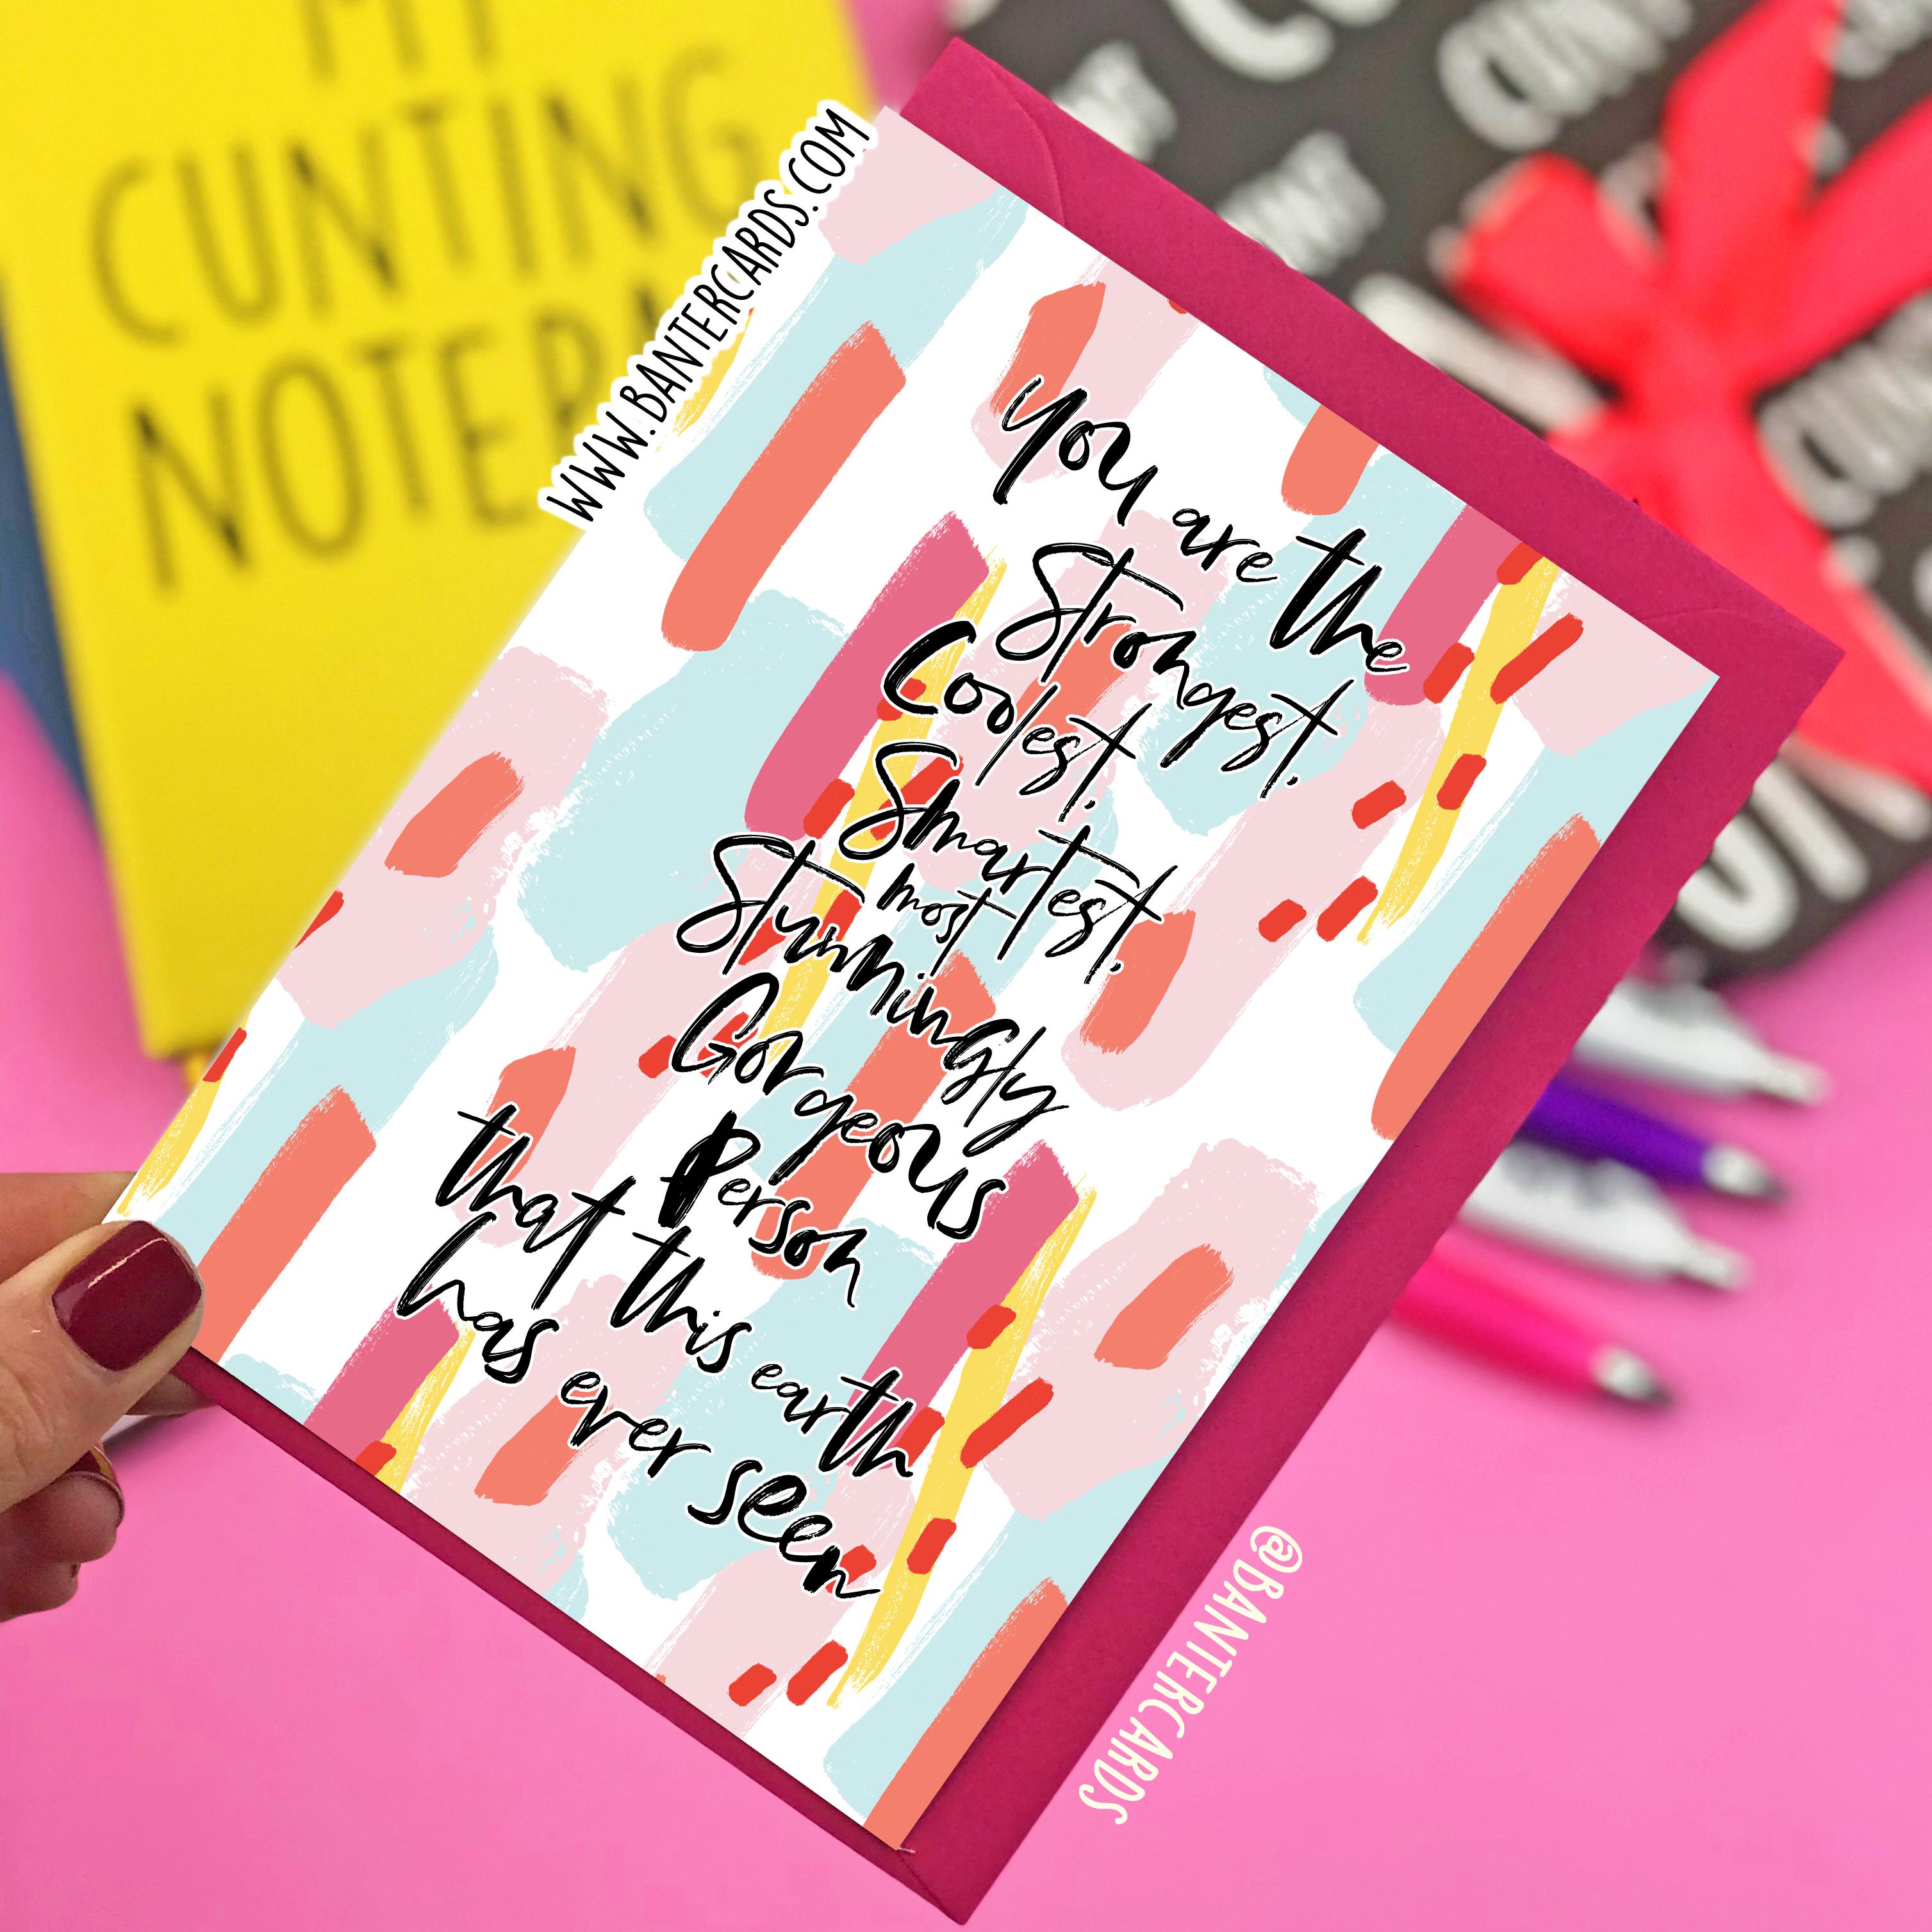 MY
CUNTING
WWW.BANTERCARDS.COM
you are the
Strongest.
Coolest.
Smartest.
most
Stunningly
Gorgeous
Person
that this earth
has ever seen
@BANTERCARDS